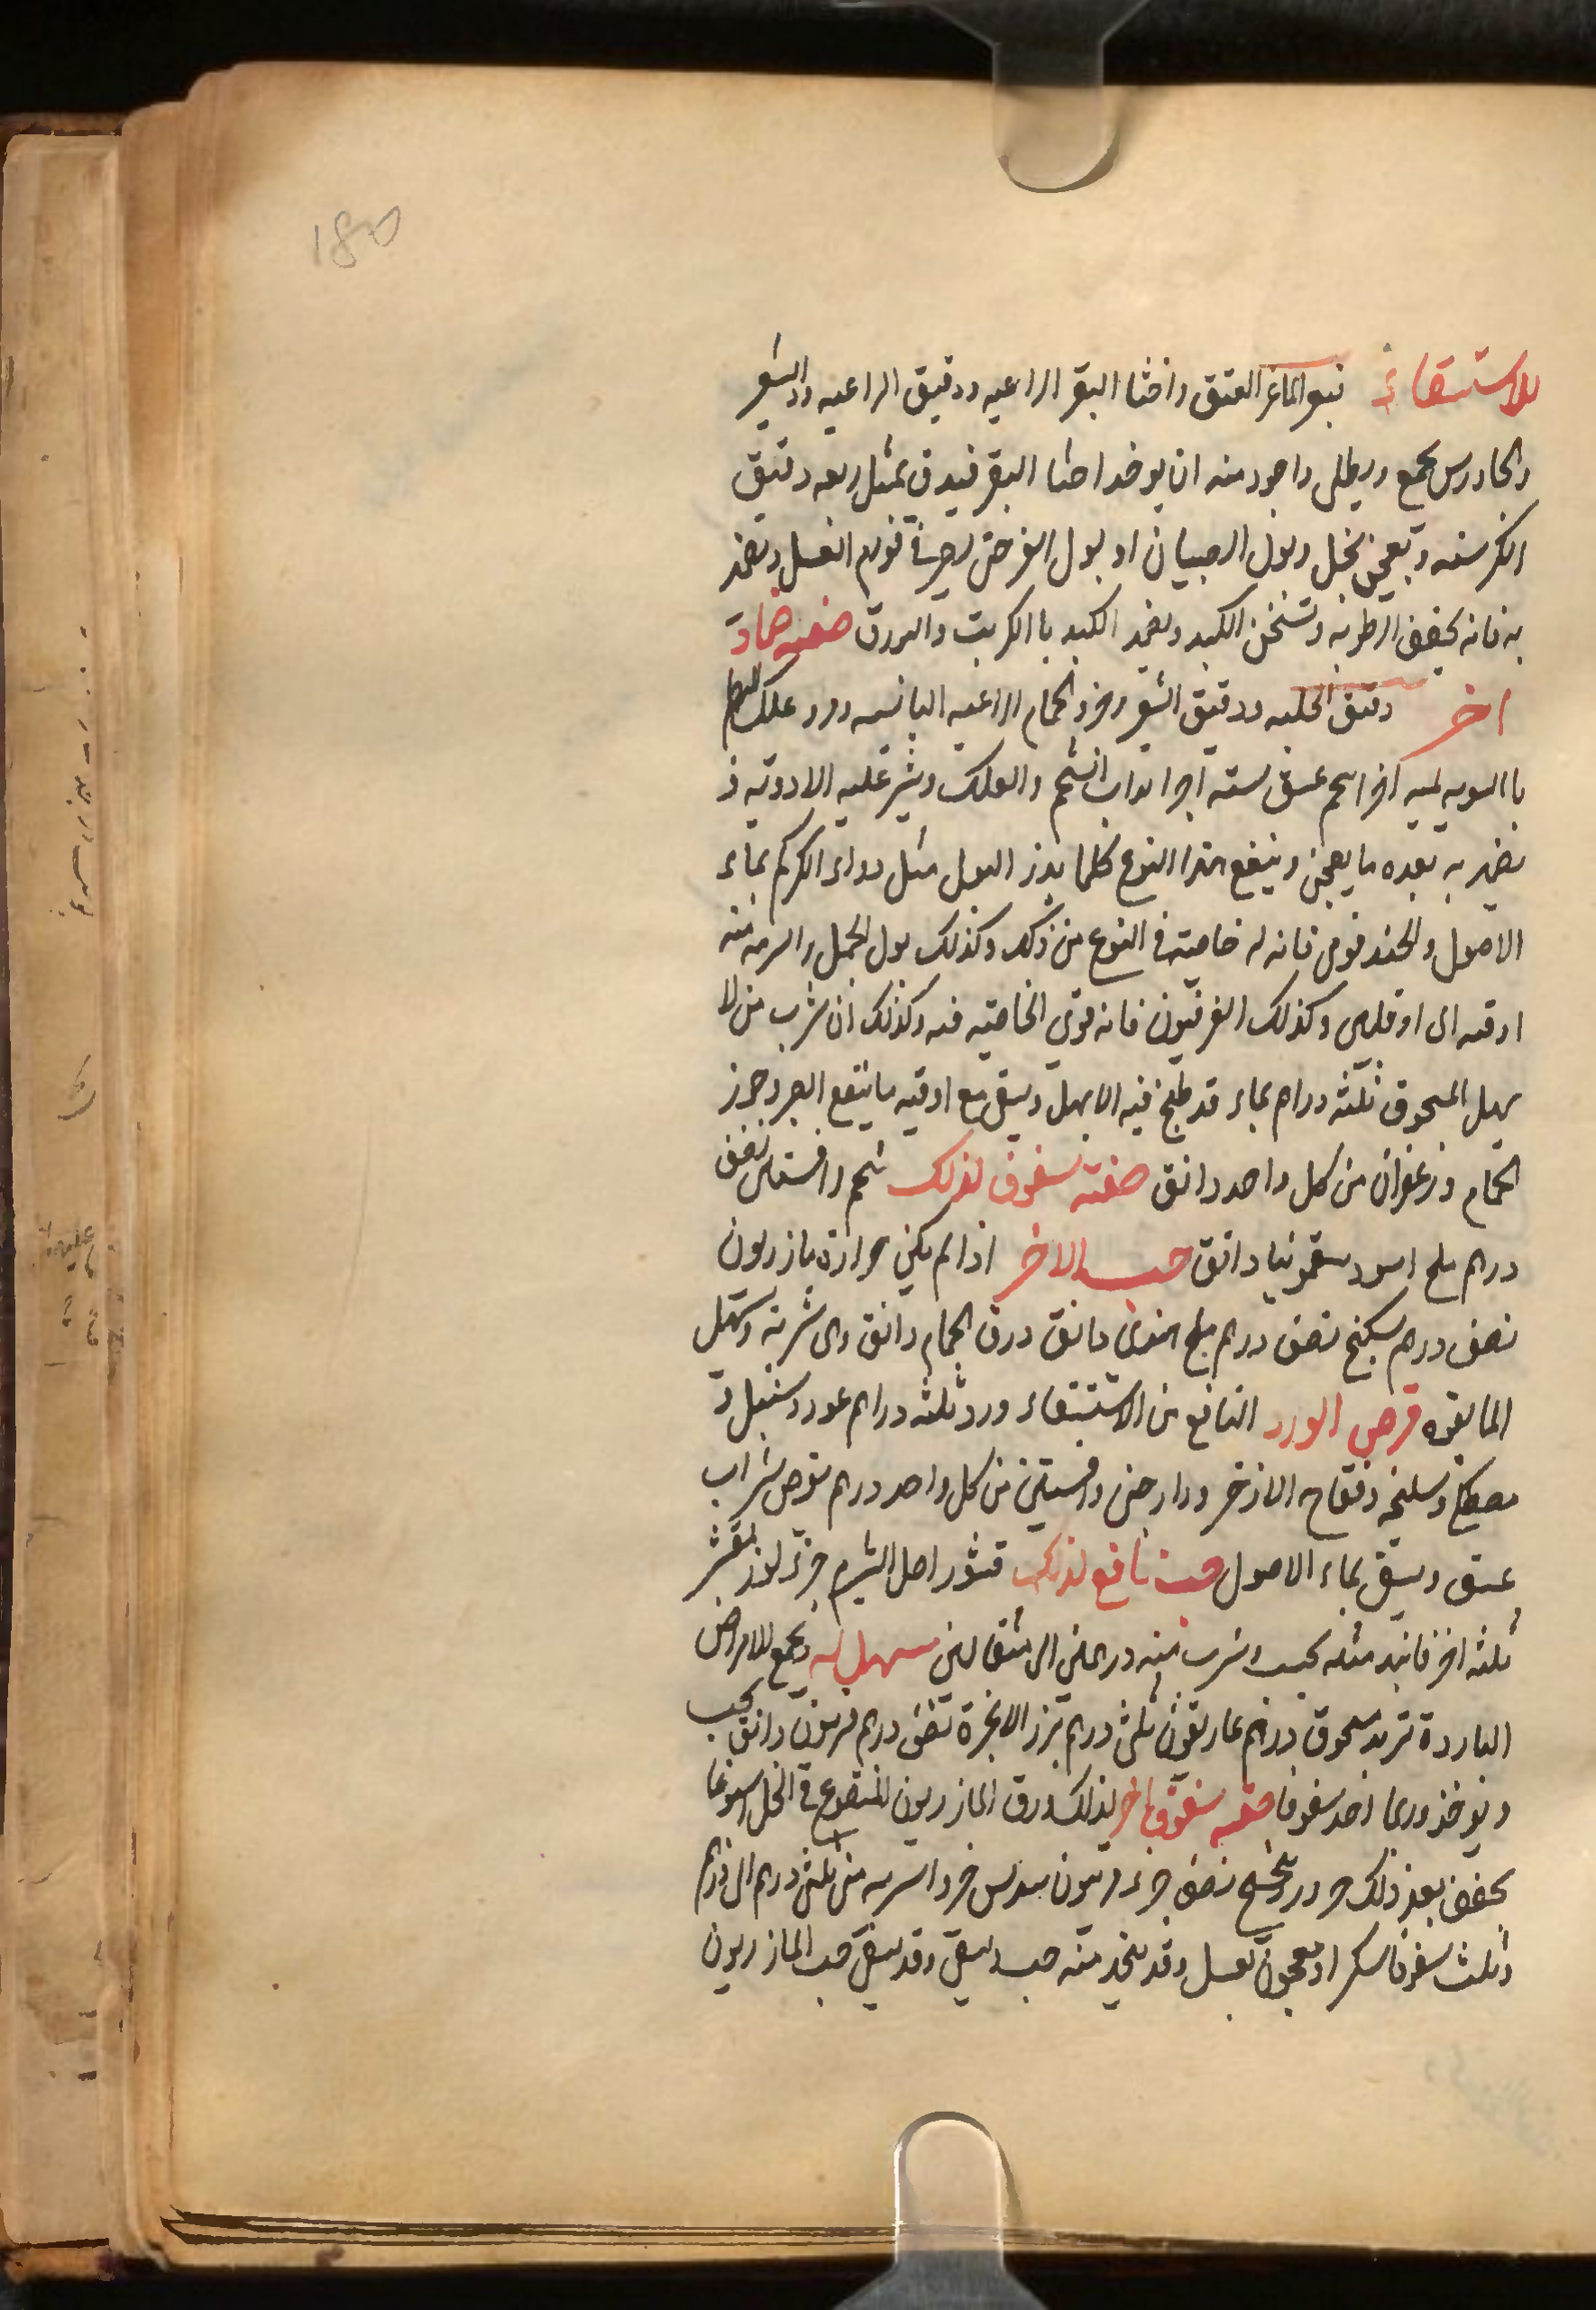 180
للاستسقاء بعر الماعز العتيق واخثا البقر الراعيه ودقيق الراعيه والشعير
والجاورس يجمع ويطلى واجود منه ان يوخذ اخثا البقر فيدق بمثل ربعه دقيق
الكرسنه ويعجن بخل وبول الصبيان او بول البقر حتى يصير في قوام العسل ويضمد
به فانه يجفف الرطوبه وتسخن الكبد ويضمد الكبد با الكبريت والبورق صفة ضماد
اخر دقيق الحلبه ودقيق الشعير وخرو الحمام الراعيه اليابسه ودرد علك البطم
با السويه لميه اخر شحم عتيق سته اجزا يذاب الشحم والعلك وينثر عليه الادويه و
يضمد به بعده ما يعجن وينفع هذا النوع كلما يدر البول مثل دواء الكركم بماء
الاصول والحندقوقى فانه له خاصيته في النوع من ذلك وكذلك بول الجمل والشربه منه
اوقيه الى اوقيتين وكذلك الفربيون فانه قوى الخاصيه فيه وكذلك ان شرب من لا
يهل المسحوق ثلثه دراهم بماء قد طبخ فيه الابهل ويسقى مع اوقيه ما ينفع البصر وخرو
الحمام وزعفران من كل واحد دانق صفته سفوف لذلك شحم وافسنتين نصف
درهم ملح اسود سقمونيا دانق حب الاخر اذا لم يكن حرارة مازريون
نصف درهم سكبينج نصف درهم ملح هندى دانق ذرق الحمام دانق وهى شربته ويسهل
الما بقوه قرص الورد النافع من الاستسقاء ورد ثلثه دراهم عود وسنبل و
مصطكى وسليخه وفقاح الاذخر ودارصينى وافسنتين من كل واحد درهم يقرص بشراب
عتيق ويسقى بماء الاصول حب نافع لذلك قشور اصل الشبرم جزء لوز مقشر
ثلثه اخر فانيد مثله يحبب ويشرب منه درهمين الى مثقالين مسهل له ويجمع للامراض
البارده تربد مسحوق درهم غاريقون ثلثى درهم بزر الانجرة نصف درهم فربيون دانق يحبب
ويوخذ وربما اخذ سفوفا صفه سفوف اخر لذلك ورق المازريون المنقوع في الخل اسبوعا
يجفف بعد ذلك جزء نصف جزء فربيون سدس جزء الشربه من ثلثى درهم الى درهم
وثلث سفوفا بسكر او معجون بعسل وقد يتخذ منه حب ويسقى وقد يسقى حب المازريون